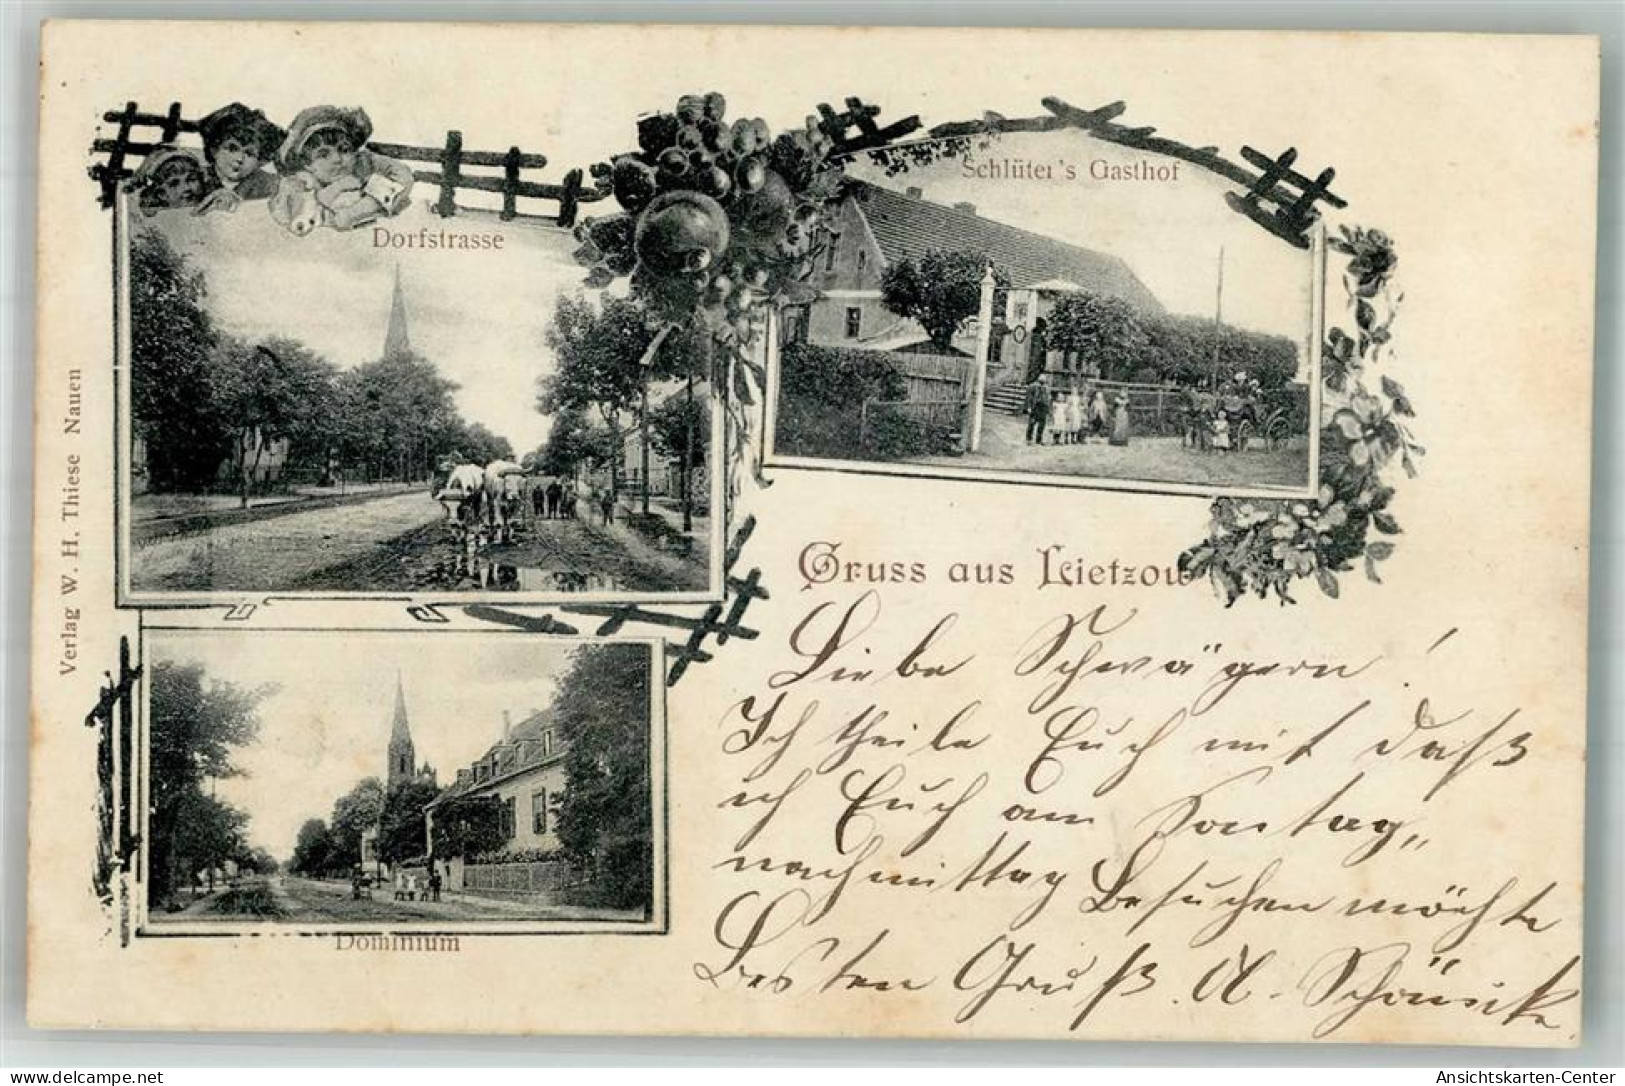 Verlag W. H. Thiese Nauen
Dorfstrasse
Schlüter's Gasthof
Gruss aus Lietzow
Dominium
Liebe Schwägern!
Ich theile Euch mit daß
ich Euch am Sontag,,
nachmittag Besuchen möchte
Besten Gruß. A.
Ansichtskarten-Center
delcampe.net